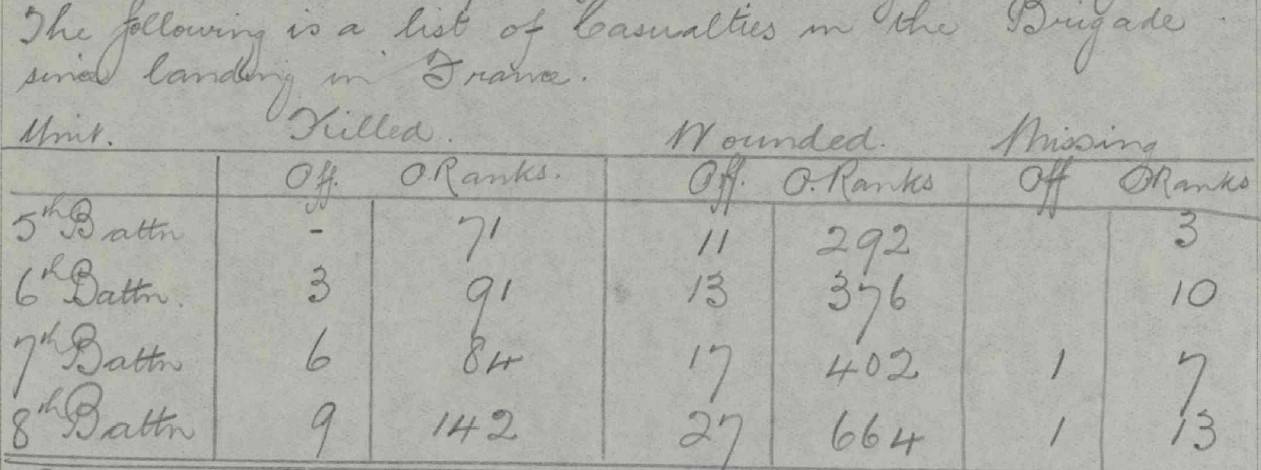 The following is a list of Casualties in the Brigade
since landing in France.
Unit. Killed. Wounded. Missing
Off. O.Ranks. Off. O.Ranks Off ORanks
5th Battn - 71 11 292 3
6th Battn. 3 91 13 376 10
7th Battn 6 84 17 402 1 7
8th Battn 9 142 27 664 1 13